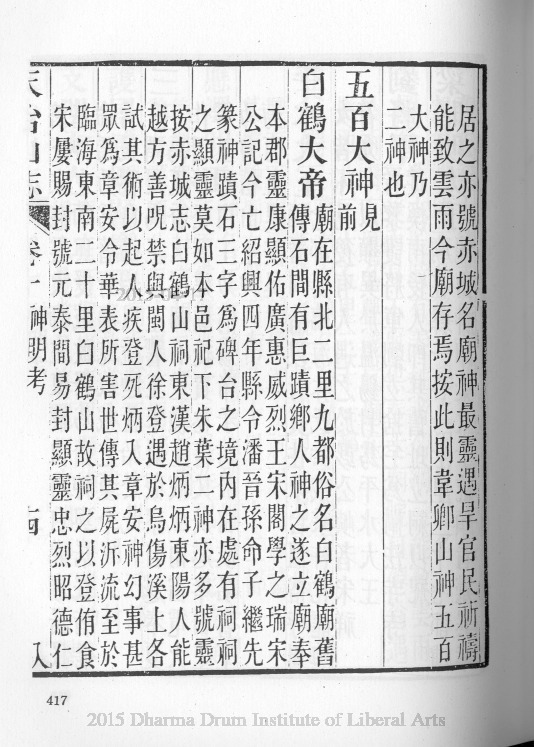 居之亦號赤城名廟神最靈遇旱官民祈禱
能致雲雨今廟存焉按此則韋卿山神五百
大神乃
二神也
五百大神見
前
白鶴大帝廟在縣北二里九都俗名白鶴廟舊
傳石間有巨蹟鄉人神之遂立廟奉
本郡靈康顯佑廣惠威烈王宋閣學之瑞宋
公記今亡紹興四年縣令潘晉孫命子繼先
篆神蹟石三字爲碑台之境內在處有祠祠
之顯靈莫如本邑祀下朱葉二神亦多號靈
按赤城志白鶴山祠東漢趙炳炳東陽人能
越方善呪禁與閩人徐登遇於烏傷溪上各
試其術以起人疾登死炳入章安神幻事甚
眾爲章安令華表所害世傳其屍沂流至於
臨海東南二十里白鶴山故祠之以登侑食
宋屢賜封號元泰間易封顯靈忠烈昭德仁
天台山志 卷 神明考
417
2015 Dharma Drum Institute of Liberal Arts